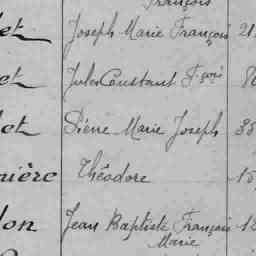 François
et Joseph Marie François 21
et Jules Constant Fçois
et Pierre Marie Joseph 35
nière Théodore 15
lon Jean Baptiste François
Marie